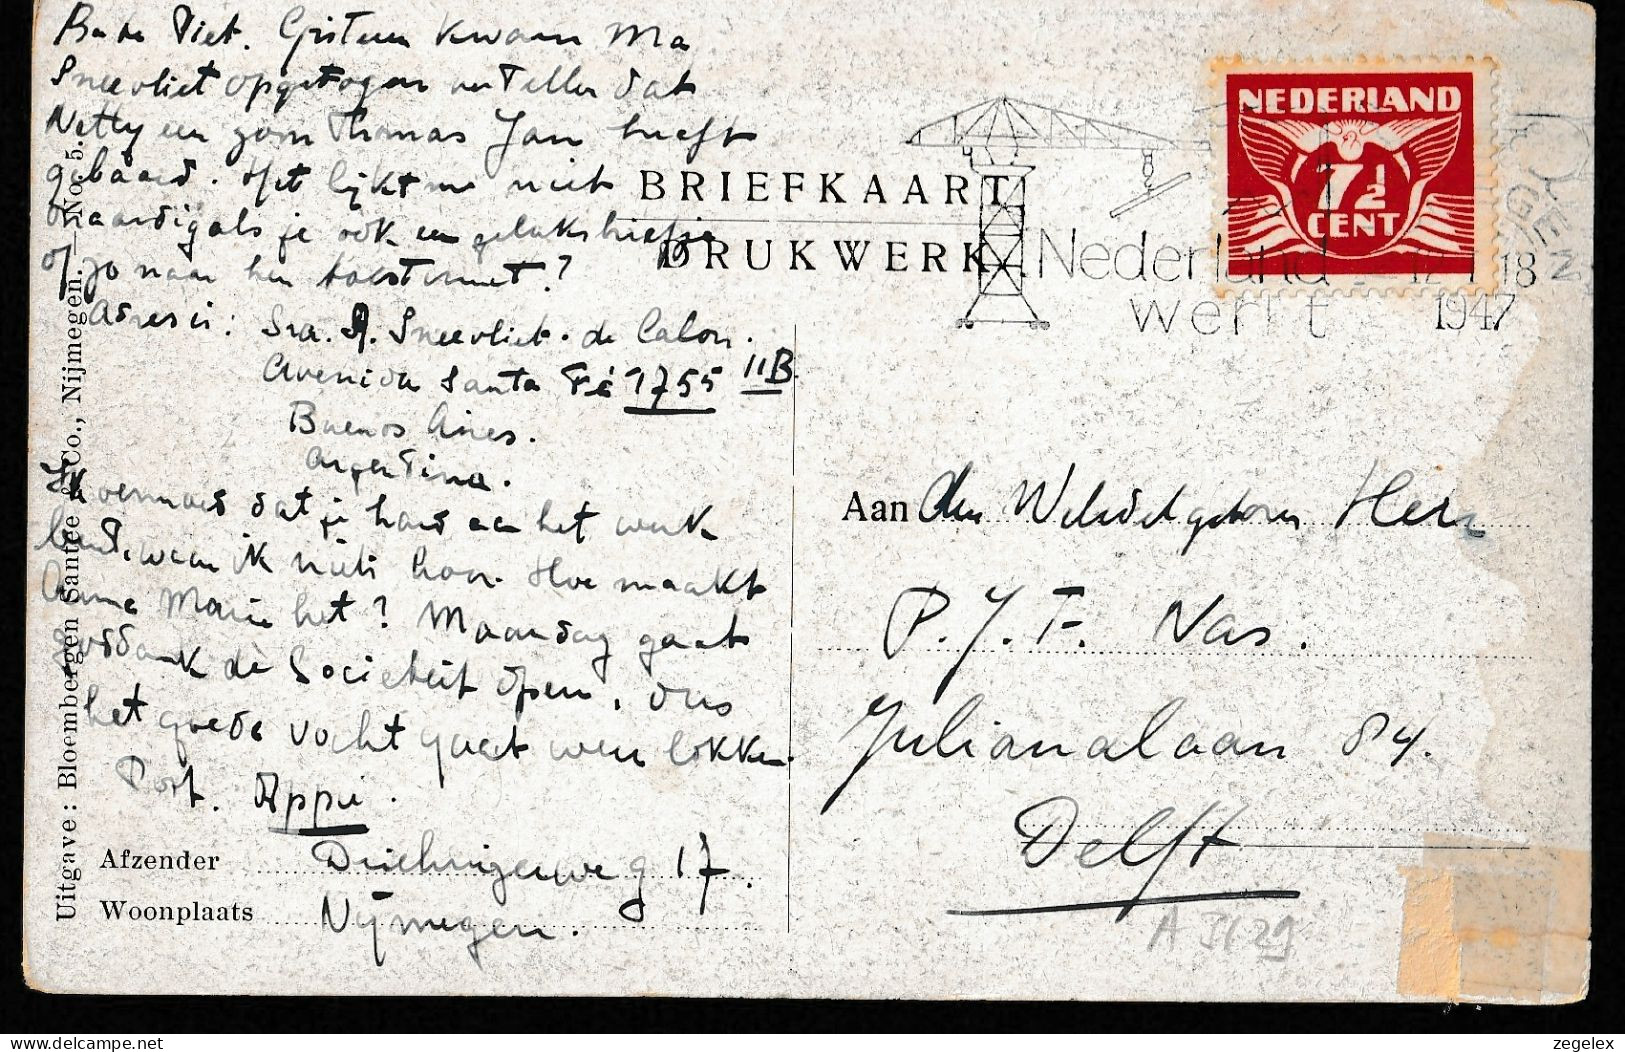 Beste Piet. Gisteren kwam Ma
Sneevliet opgetogen vertellen dat
Netty een zoon Thomas Jan heeft
gebaard. Het lijkt me niet
onaardig als je ook een geluksbriefje
of zo naar hen toestuurt?
Adres is: Sra. A. Sneevliet. de Calon.
Avenida Santa Fé 1755 IIB
Buenos Aires.
Argentina.
Ik vermoed dat je hard aan het werk
bent, waar ik niets hoor. Hoe maakt
Anne Marie het? Maandag gaat
goddank de Societeit open, dus
het goede vocht gaat weer lokken.
Appie.
Afzender
17.
Woonplaats Nijmegen.
Uitgave: Bloembergen Santee & Co., Nijmegen. — No. 5.
BRIEFKAART
DRUKWERK
NEDERLAND
7½
CENT
Nederland
werkt
1947
18
Aan den Weledelgeboren Heer
P. J. F. Nas.
Julianalaan 84.
Delft
zegelex
delcampe.net